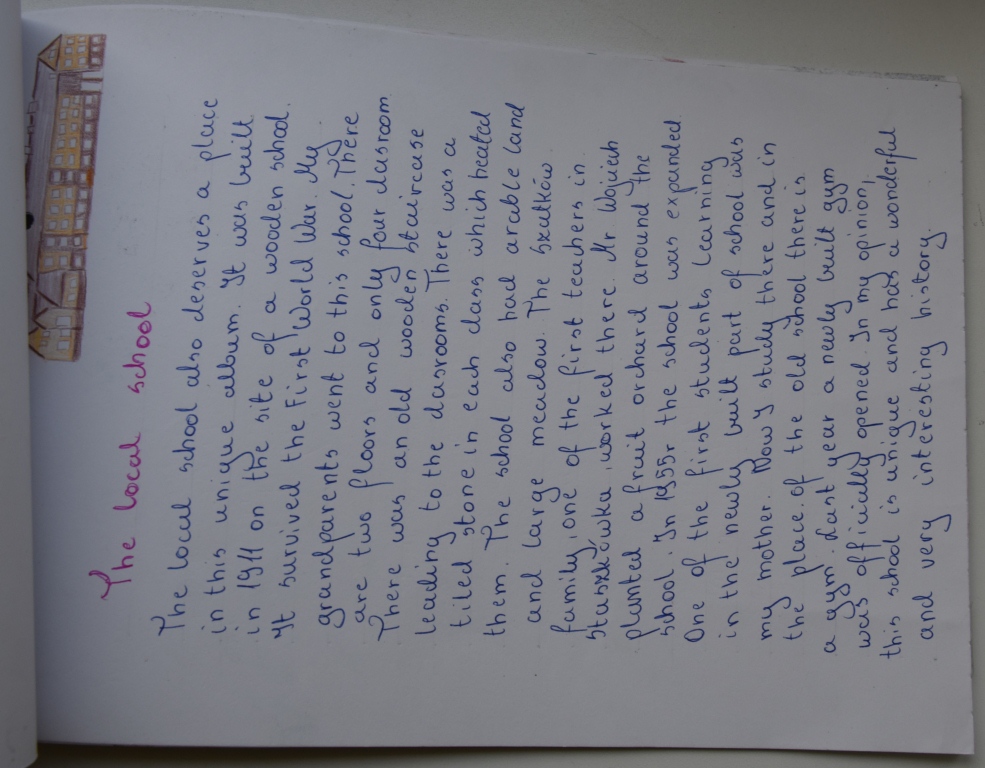 The local school
The local school also deserves a place
in this unique album. It was built
in 1911 on the site of a wooden school.
It survived the First World War. My
grandparents went to this school. There
are two floors and only four clasroom
There was an old wooden staircase
leading to the clasrooms. There was a
tiled stone in each class which heated
them. The school also had arable land
and large meadow. The Szutków
family, one of the first teachers in
Staszkówka, worked there. Mr Wojciech
planted a fruit orchard around the
school. In 1955r the school was expanded.
One of the first students learning
in the newly built part of school was
my mother. Now y study there and in
the place of the old school there is
a gym. Last year a newly built gym
was officially opened. In my opinion,
this school is unique and has a wonderful
and very interesting history.